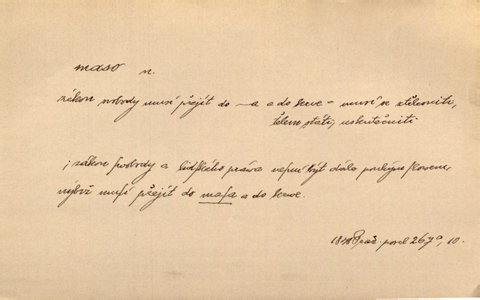 maso n.
zákon svobody musí přejít do —a a do krve = musí se ztělesniti,
tělem státi, uskutečniti
; zákon svobody a lidského práva nesmí být dále pouhým slovem,
nýbrž musí přejíti do masa a do krve.
1848 pol. 267a, 10.